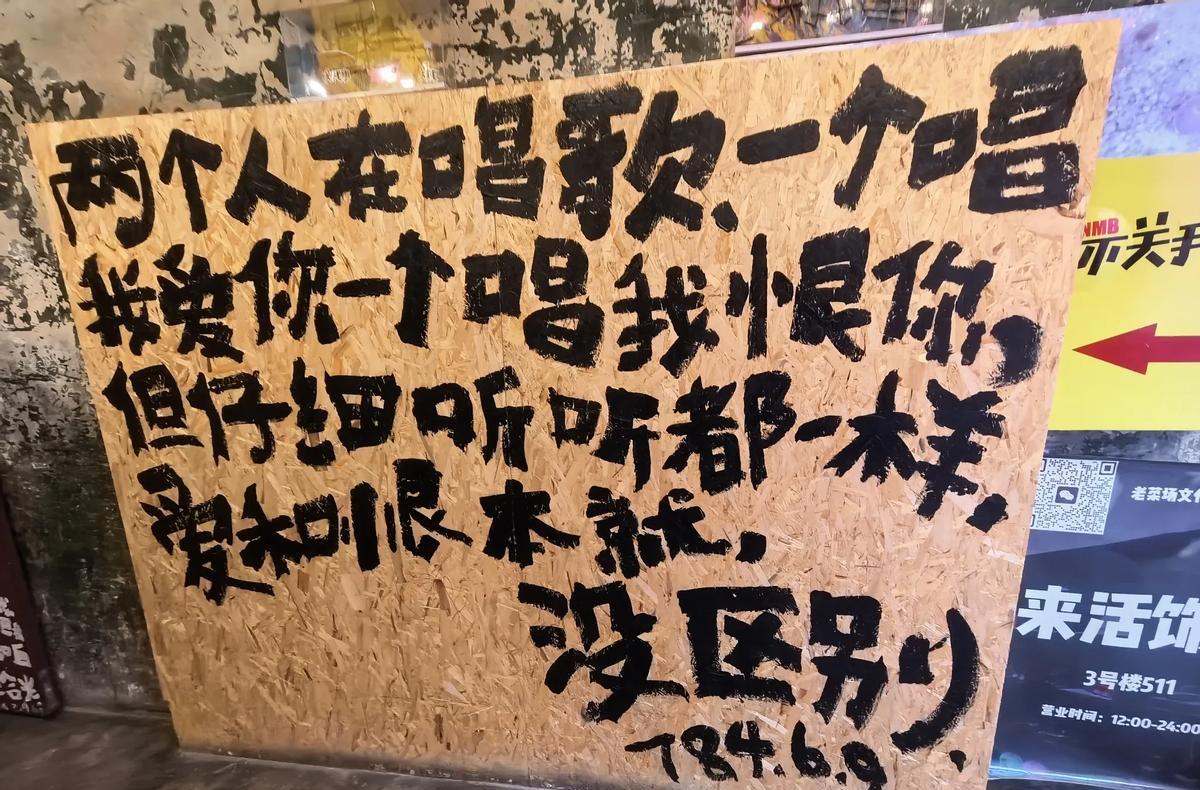 两个人在唱歌,一个唱
我爱你一个唱我恨你,
但仔细听听都一样,
爱和恨本就,
没区别.
784.6.9
NMB
不关我
老菜场文化
来活饰
3号楼511
营业时间:12:00-24:00